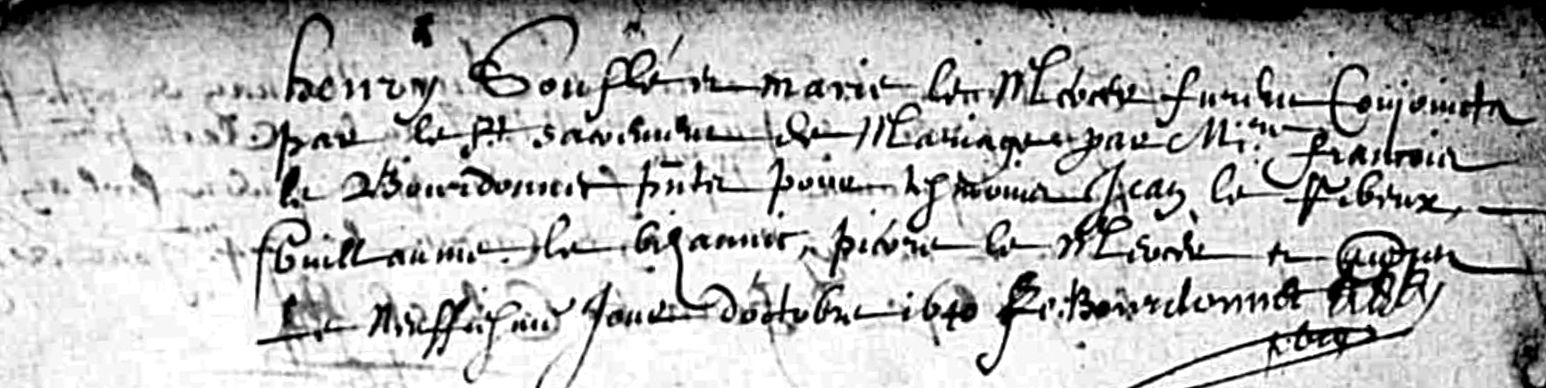 henry Souflé et marie le Mecre furent Conjoincts
par le st sacrement de Mariage par Mre francois
le Bourdonnec pnts pour tesmoins Jean le
Guillaume le bizannic, pierre le Mecre et aultres
Le neuffiesme Jour d'octobre 1640 fr. Bourdonnec